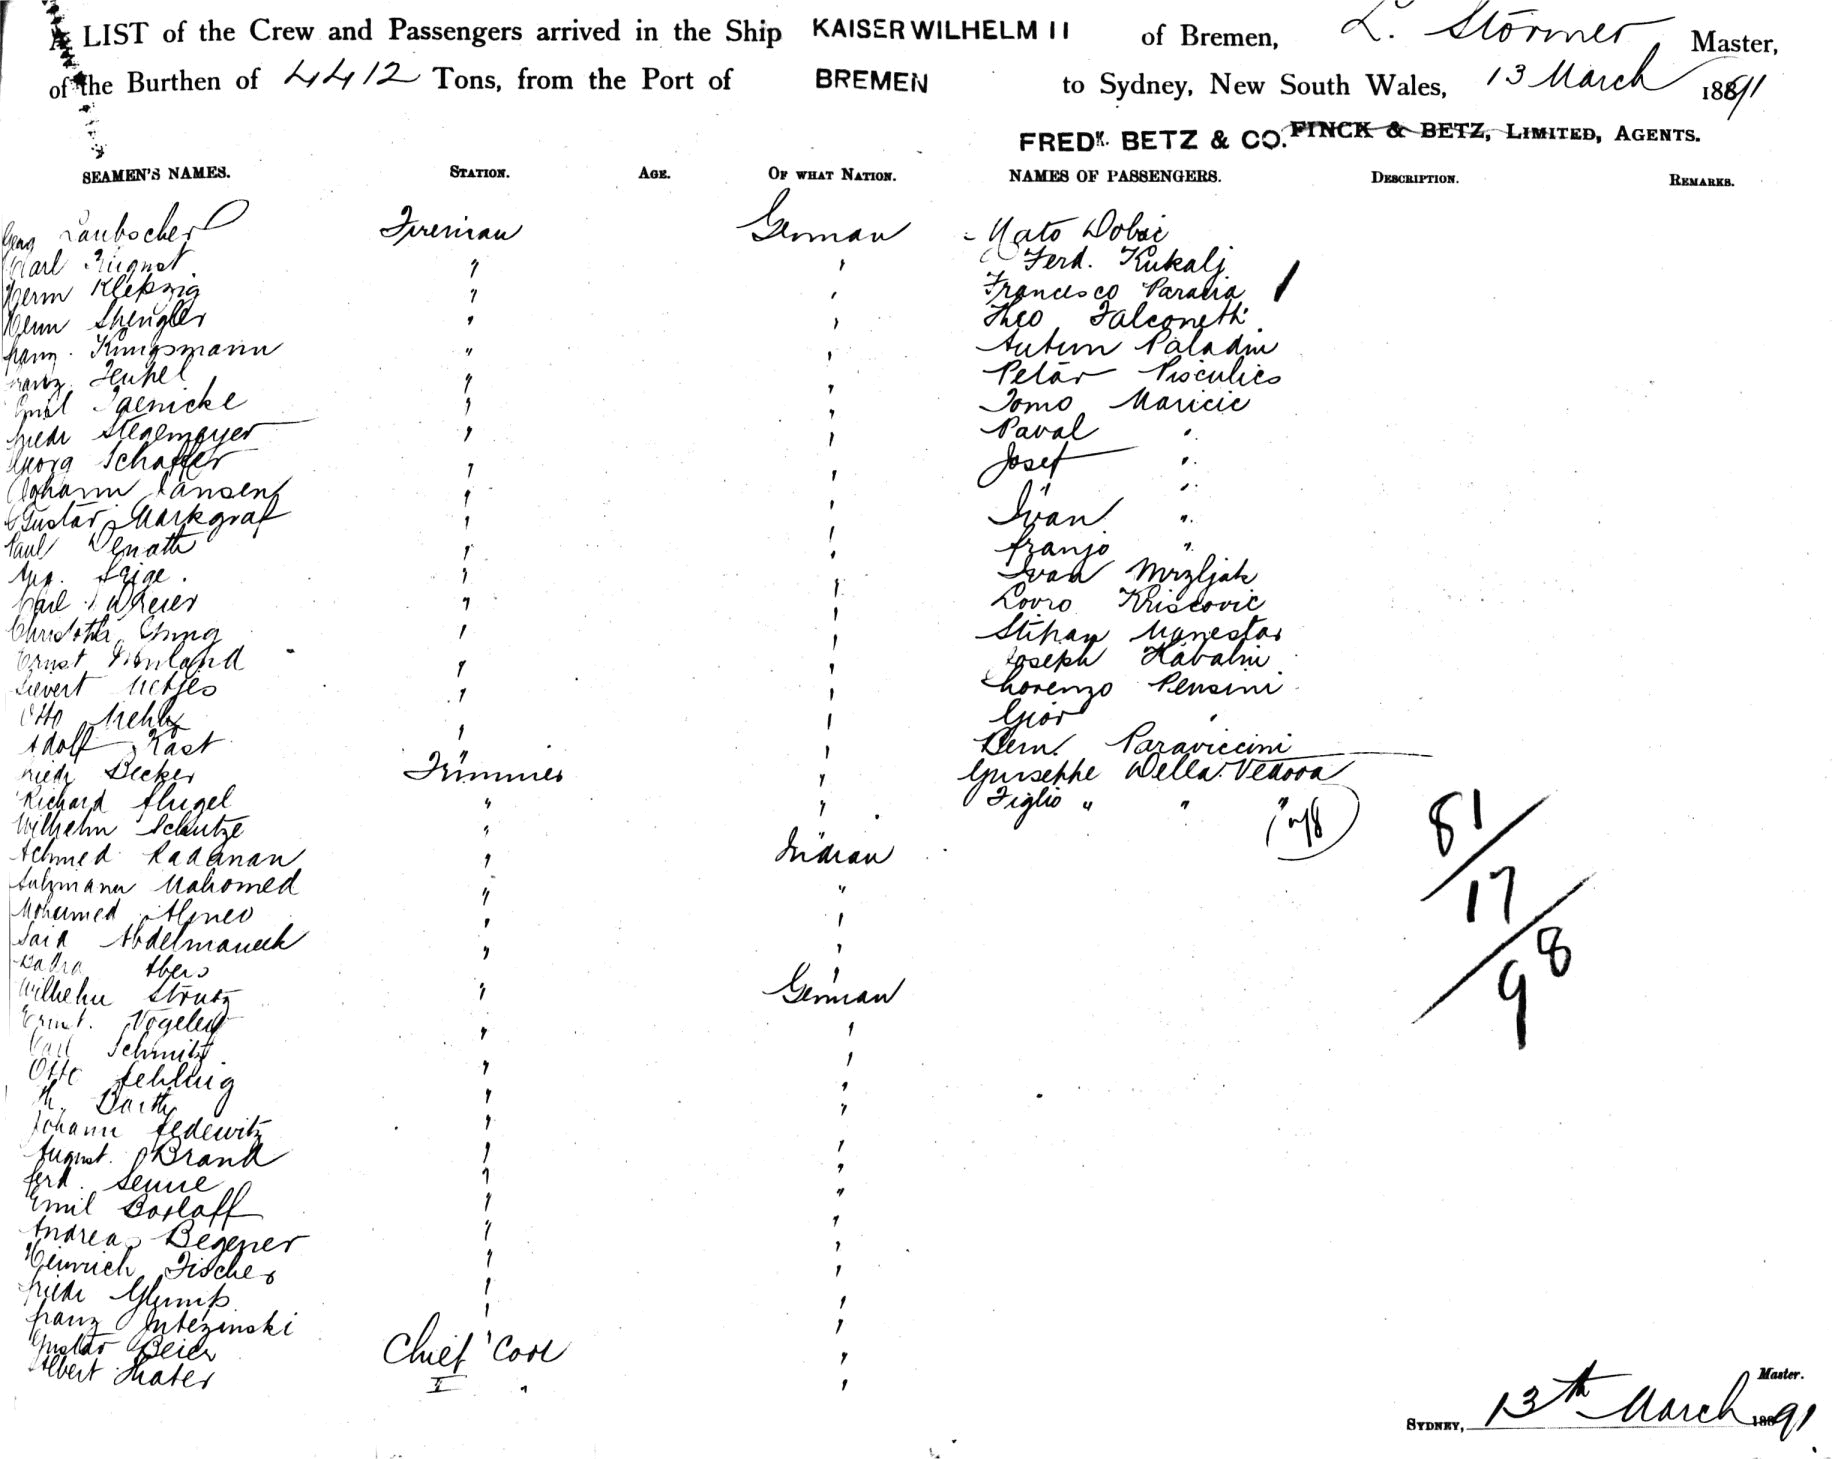 A LIST of the Crew and Passengers arrived in the Ship KAISER WILHELM II of Bremen, L. Störmer Master,
of the Burthen of 4412 Tons, from the Port of BREMEN to Sydney, New South Wales, 13 March 1891
FREDK. BETZ & CO. FINCK & BETZ, LIMITED, AGENTS.
SEAMEN'S NAMES. STATION. AGE. OF WHAT NATION. NAMES OF PASSENGERS. DESCRIPTION. REMARKS.
Georg Laubscher Fireman German Mato Dobic
Karl August " " Ferd. Kukalj
Herm Klepzig " " Francesco
Herm Shengler " " Theo Falconetti
Franz Kungsmann " " Paladin
Franz " " Petar Pisculics
Emil Jaenicke " " Tomo Maricic
Friedr Stegemeyer " " Paval "
Georg Schaffer " " Josef "
Johann Jansen " " "
Gustav Markgraf " " Ivan "
Paul " " Franjo "
Aug. " " Ivan Mrzljak
Carl " " Lovro Kriscovic
" " Stipan Manestar
Ernst " " Joseph
Sievert " " Lorenzo Pensini
Otto " " Gior "
Adolf Kast " " Bern. Paraviccini
Friedr Becker Trimmer " Guiseppe Della Vedova
Richard Flugel " " Figlio " " "
Wilhelm Schutze " "
Achmed Radanan " Indian
Mahomed " "
Mohamed " "
Said Abdelmaneck " "
" "
Wilhelm Strutz " German
Ernst. Vogeley " "
Carl Schmitz " "
Otto Fehling " "
Barth " "
Johann Fedewitz " "
August. Brand " "
Ferd. Senne " "
Emil Borloff " "
Andreas Begener " "
Heinrich Fischer " "
Friedr " "
Franz " "
Gustav Beier Chief Cook "
Albert Thater II " "
81
17
98
Master.
SYDNEY, 13th March 1891